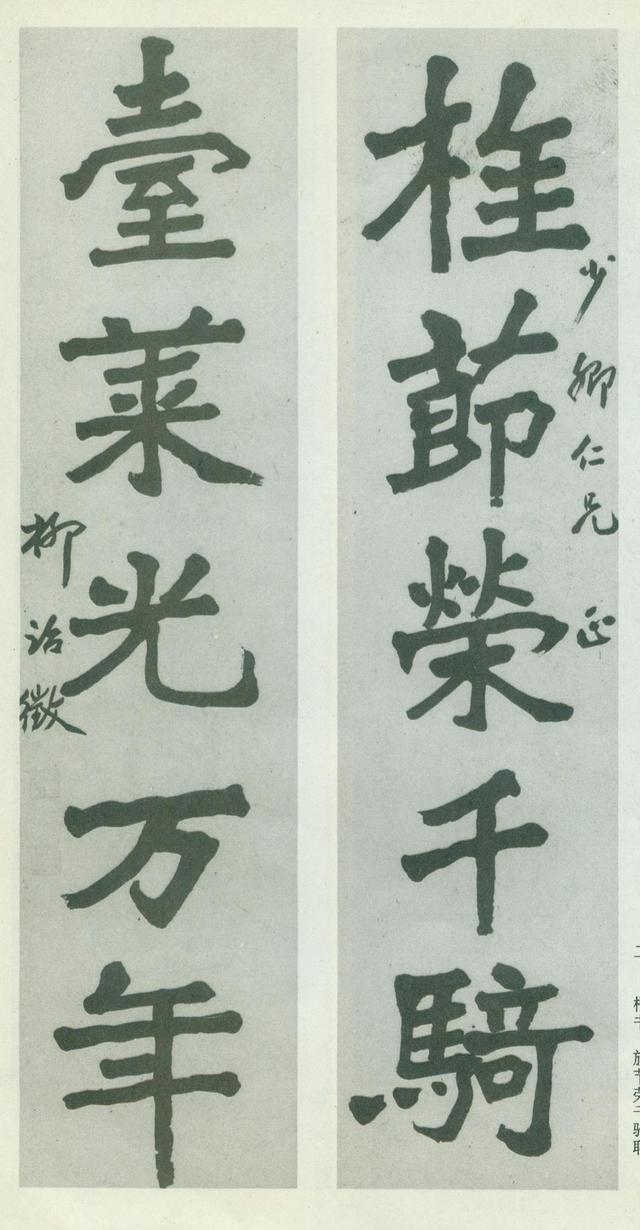 旌莭榮千騎
少卿仁兄 正
臺莱光万年
柳詒徵